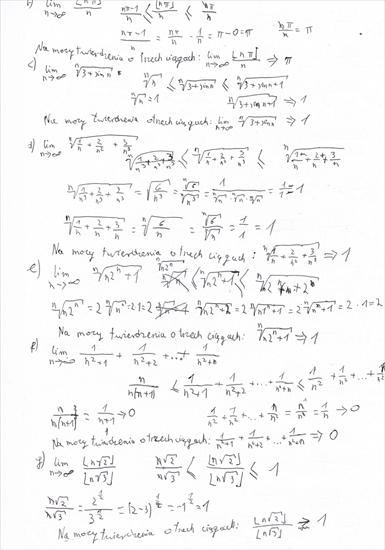 b) lim n→∞ ⌊nπ⌋/n   (nπ-1)/n ≤ ⌊nπ⌋/n ≤ nπ/n
(nπ-1)/n = nπ/n - 1/n = π-0=π   nπ/n = π
Na mocy twierdzenia o trzech ciągach: lim n→∞ ⌊nπ⌋/n ⇒ π
c) lim n→∞ ⁿ√(3+sin n)
ⁿ√n = 1
ⁿ√(3+sin n+1) ⇒ 1
mocy twierdzenia o trzech ciągach: lim n→∞ ⁿ√(3+sin n) ⇒ 1
d) lim n→∞ ⁿ√(1/n + 2/n² + 3/n³)
≤ ⁿ√(1/n + 2/n² + 3/n³) ≤
ⁿ√(1/n³ + 2/n³ + 3/n³) = ⁿ√(6/n³) = ⁿ√6/ⁿ√n³ = 1/(ⁿ√n·ⁿ√n·ⁿ√n) = 1/1 = 1
ⁿ√(1/n + 2/n + 3/n) = ⁿ√(6/n) = ⁿ√6/ⁿ√n = 1/1 = 1
Na mocy twierdzenia o trzech ciągach: ⁿ√(1/n + 2/n² + 3/n³) ⇒ 1
e) lim n→∞ ⁿ√(n2ⁿ+1)   ⁿ√(n2ⁿ) ≤ ⁿ√(n2ⁿ+1) ≤
ⁿ√(n2ⁿ) = 2 ⁿ√n = 2·1 = 2   = 2·1=2
Na mocy twierdzenia o trzech ciągach: ⁿ√(n2ⁿ+1) ⇒ 1
f) lim n→∞ 1/(n²+1) + 1/(n²+2) + ... + 1/(n²+n)
n/(n(n+1)) ≤ 1/(n²+1) + 1/(n²+2) + ... + 1/(n²+n) ≤ 1/n² + 1/n² + ... + 1/n²
n/(n(n+1)) = 1/(n+1) → 0   1/n² + 1/n² + ... + 1/n² = n/n² = 1/n → 0
Na mocy twierdzenia o trzech ciągach: 1/(n²+1) + 1/(n²+2) + ... + 1/(n²+n) ⇒ 0
g) lim n→∞ ⌊n√2⌋/⌊n√3⌋   n√2/n√3 ≤ ⌊n√2⌋/⌊n√3⌋ ≤ 1
n√2/n√3 = 2^½/3^½ = (2-3)^½ = -1^½ = 1
Na mocy twierdzenia o trzech ciągach: ⌊n√2⌋/⌊n√3⌋ ⇒ 1